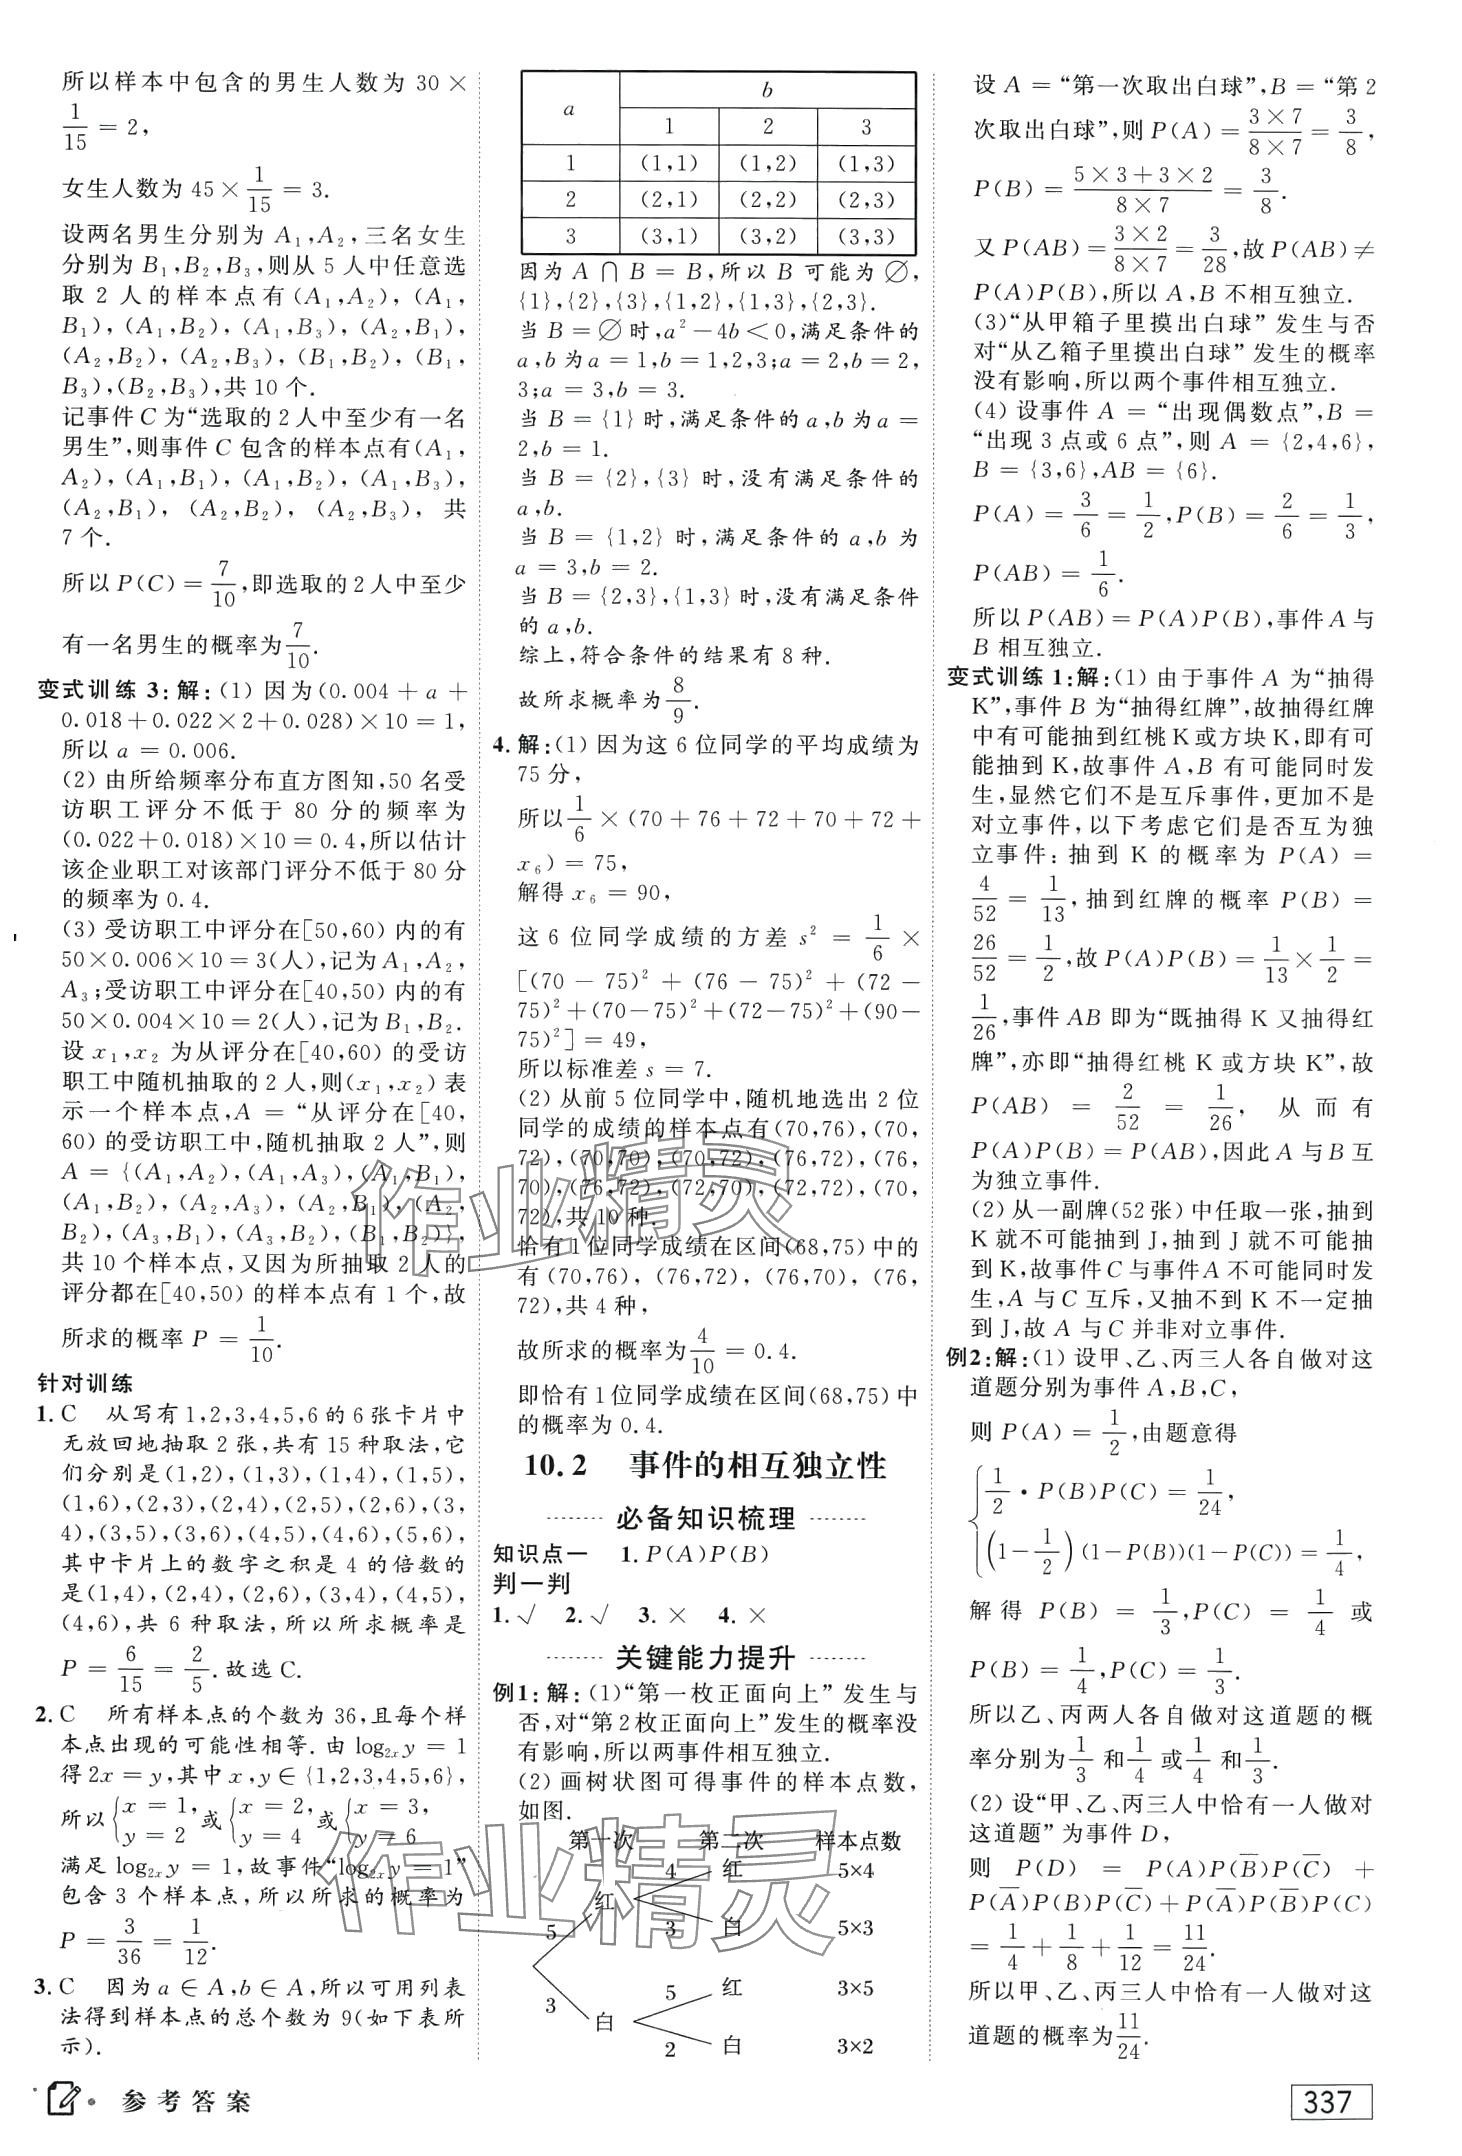 所以样本中包含的男生人数为 30 ×
1/15 = 2,
女生人数为 45 × 1/15 = 3.
设两名男生分别为 A₁,A₂,三名女生
分别为 B₁,B₂,B₃,则从 5 人中任意选
取 2 人的样本点有(A₁,A₂), (A₁,
B₁), (A₁,B₂), (A₁,B₃), (A₂,B₁),
(A₂,B₂), (A₂,B₃), (B₁,B₂), (B₁,
B₃),(B₂,B₃),共 10 个.
记事件 C 为“选取的 2 人中至少有一名
男生”,则事件 C 包含的样本点有(A₁,
A₂), (A₁,B₁), (A₁,B₂), (A₁,B₃),
(A₂,B₁), (A₂,B₂), (A₂,B₃), 共
7 个.
所以 P(C) = 7/10,即选取的 2 人中至少
有一名男生的概率为 7/10.
变式训练 3:解:(1) 因为(0.004 + a +
0.018+0.022×2+0.028)×10=1,
所以 a = 0.006.
(2) 由所给频率分布直方图知,50 名受
访职工评分不低于 80 分的频率为
(0.022+0.018)×10=0.4,所以估计
该企业职工对该部门评分不低于 80 分
的频率为 0.4.
(3) 受访职工中评分在[50,60) 内的有
50×0.006×10=3(人),记为 A₁,A₂,
A₃;受访职工中评分在[40,50) 内的有
50×0.004×10=2(人),记为 B₁,B₂.
设 x₁,x₂ 为从评分在[40,60) 的受访
职工中随机抽取的 2 人,则(x₁,x₂) 表
示一个样本点,A = “从评分在[40,
60) 的受访职工中,随机抽取 2 人”,则
A = {(A₁,A₂),(A₁,A₃),(A₁,B₁),
(A₁,B₂),(A₂,A₃),(A₂,B₁),(A₂,
B₂),(A₃,B₁),(A₃,B₂),(B₁,B₂)},
共 10 个样本点,又因为所抽取 2 人的
评分都在[40,50) 的样本点有 1 个,故
所求的概率 P = 1/10.
针对训练
1. C 从写有 1,2,3,4,5,6 的 6 张卡片中
无放回地抽取 2 张,共有 15 种取法,它
们分别是(1,2),(1,3),(1,4),(1,5),
(1,6),(2,3),(2,4),(2,5),(2,6),(3,
4),(3,5),(3,6),(4,5),(4,6),(5,6),
其中卡片上的数字之积是 4 的倍数的
是(1,4),(2,4),(2,6),(3,4),(4,5),
(4,6),共 6 种取法,所以所求概率是
P = 6/15 = 2/5.故选 C.
2. C 所有样本点的个数为 36,且每个样
本点出现的可能性相等. 由 log₂ₓy = 1
得 2x = y,其中 x,y ∈ {1,2,3,4,5,6},
所以 {x = 1, y = 2 或 {x = 2, y = 4 或 {x = 3, y = 6
满足 log₂ₓy = 1,故事件“log₂ₓy = 1”
包含 3 个样本点,所以所求的概率为
P = 3/36 = 1/12.
3. C 因为 a ∈ A,b ∈ A,所以可用列表
法得到样本点的总个数为 9(如下表所
示).
a b
1 2 3
1 (1,1) (1,2) (1,3)
2 (2,1) (2,2) (2,3)
3 (3,1) (3,2) (3,3)
因为 A ∩ B = B,所以 B 可能为 ∅,
{1},{2},{3},{1,2},{1,3},{2,3}.
当 B = ∅ 时,a² − 4b < 0,满足条件的
a,b 为 a = 1,b = 1,2,3;a = 2,b = 2,
3;a = 3,b = 3.
当 B = {1} 时,满足条件的 a,b 为 a =
2,b = 1.
当 B = {2},{3} 时,没有满足条件的
a,b.
当 B = {1,2} 时,满足条件的 a,b 为
a = 3,b = 2.
当 B = {2,3},{1,3} 时,没有满足条件
的 a,b.
综上,符合条件的结果有 8 种.
故所求概率为 8/9.
4. 解:(1) 因为这 6 位同学的平均成绩为
75 分,
所以 1/6 × (70 + 76 + 72 + 70 + 72 +
x₆) = 75,
解得 x₆ = 90,
这 6 位同学成绩的方差 s² = 1/6 ×
[(70 − 75)² + (76 − 75)² + (72 −
75)² + (70−75)² + (72−75)² + (90−
75)²] = 49,
所以标准差 s = 7.
(2) 从前 5 位同学中,随机地选出 2 位
同学的成绩的样本点有(70,76),(70,
72),(70,70),(70,72),(76,72),(76,
70),(76,72),(72,70),(72,72),(70,
72),共 10 种.
恰有 1 位同学成绩在区间(68,75) 中的
有 (70,76), (76,72), (76,70), (76,
72),共 4 种,
故所求的概率为 4/10 = 0.4.
即恰有 1 位同学成绩在区间(68,75) 中
的概率为 0.4.
10.2 事件的相互独立性
必备知识梳理
知识点一 1. P(A)P(B)
判一判
1. √ 2. √ 3. × 4. ×
关键能力提升
例1:解:(1)“第一枚正面向上” 发生与
否,对“第 2 枚正面向上”发生的概率没
有影响,所以两事件相互独立.
(2) 画树状图可得事件的样本点数,
如图.
第一次 第二次 样本点数
4 红 5×4
红
5 3 白 5×3
5 红 3×5
3
白
2 白 3×2
设 A = “第一次取出白球”,B = “第 2
次取出白球”,则 P(A) = 3×7/8×7 = 3/8,
P(B) = 5×3+3×2/8×7 = 3/8.
又 P(AB) = 3×2/8×7 = 3/28,故 P(AB) ≠
P(A)P(B),所以 A,B 不相互独立.
(3)“从甲箱子里摸出白球” 发生与否
对“从乙箱子里摸出白球” 发生的概率
没有影响,所以两个事件相互独立.
(4) 设事件 A = “出现偶数点”,B =
“出现 3 点或 6 点”,则 A = {2,4,6},
B = {3,6},AB = {6}.
P(A) = 3/6 = 1/2,P(B) = 2/6 = 1/3,
P(AB) = 1/6.
所以 P(AB) = P(A)P(B),事件 A 与
B 相互独立.
变式训练 1:解:(1) 由于事件 A 为“抽得
K”,事件 B 为“抽得红牌”,故抽得红牌
中有可能抽到红桃 K 或方块 K,即有可
能抽到 K,故事件 A,B 有可能同时发
生,显然它们不是互斥事件,更加不是
对立事件,以下考虑它们是否互为独
立事件: 抽到 K 的概率为 P(A) =
4/52 = 1/13,抽到红牌的概率 P(B) =
26/52 = 1/2,故 P(A)P(B) = 1/13 × 1/2 =
1/26,事件 AB 即为“既抽得 K 又抽得红
牌”,亦即“抽得红桃 K 或方块 K”,故
P(AB) = 2/52 = 1/26, 从而有
P(A)P(B) = P(AB),因此 A 与 B 互
为独立事件.
(2) 从一副牌(52 张) 中任取一张,抽到
K 就不可能抽到 J,抽到 J 就不可能抽
到 K,故事件 C 与事件 A 不可能同时发
生,A 与 C 互斥,又抽不到 K 不一定抽
到 J,故 A 与 C 并非对立事件.
例2:解:(1) 设甲、乙、丙三人各自做对这
道题分别为事件 A,B,C,
则 P(A) = 1/2,由题意得
{1/2 · P(B)P(C) = 1/24,
(1 − 1/2)(1−P(B))(1−P(C)) = 1/4,
解得 P(B) = 1/3,P(C) = 1/4 或
P(B) = 1/4,P(C) = 1/3.
所以乙、丙两人各自做对这道题的概
率分别为 1/3 和 1/4 或 1/4 和 1/3.
(2) 设“甲、乙、丙三人中恰有一人做对
这道题” 为事件 D,
则 P(D) = P(A)P(B̅)P(C̅) +
P(A̅)P(B)P(C̅) + P(A̅)P(B̅)P(C)
= 1/4 + 1/8 + 1/12 = 11/24.
所以甲、乙、丙三人中恰有一人做对这
道题的概率为 11/24.
作业精灵
作业精灵
参考答案
337